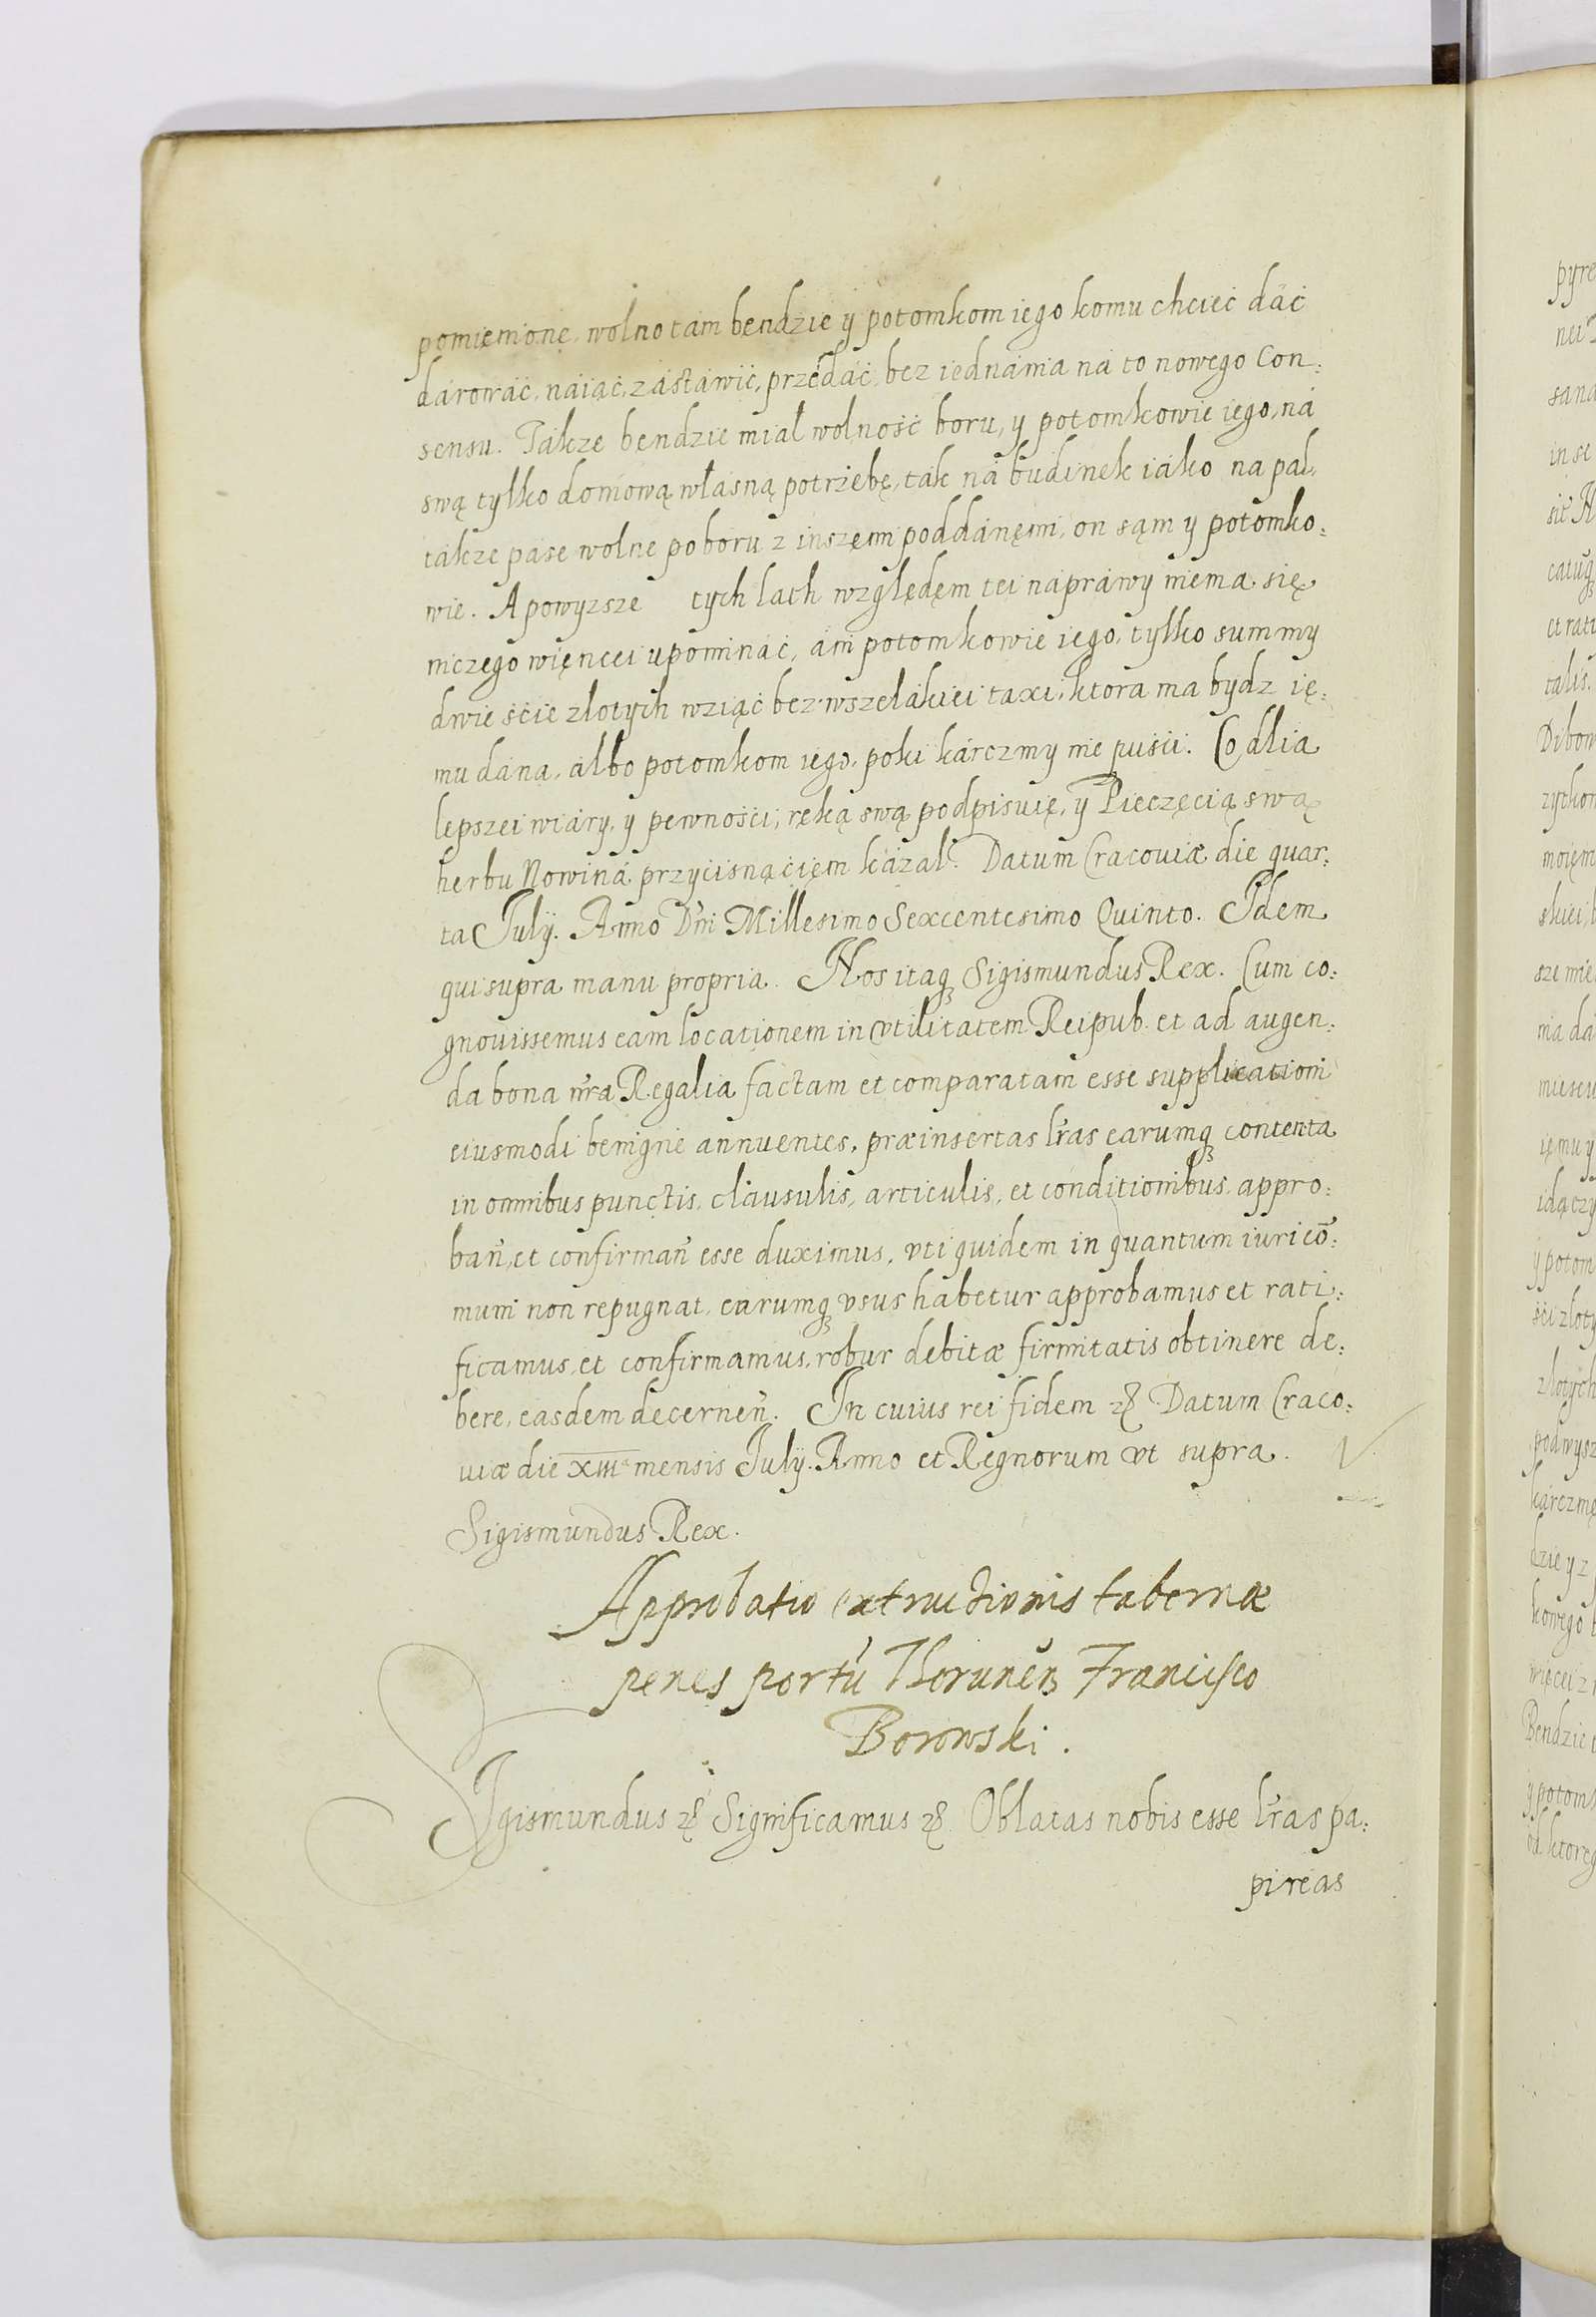 pomięnionę, wolno tám bendzie y potomkom iego komu chcieć dáć
dárowáć, náiąć, zástáwić, przedáć, bez iednánia ná to nowego Con:
sensu. Tákze bendzie miał wolność boru, y potomkowie iego, ná
swą tylko domową własną potrzebę, ták ná budinek iáko na pał,
tákze páse wolne po boru z inszęmi poddánęmi, on sąm y potomko:
wie. A powyzsze tych lath względęm tei nápráwy niema się
niczego więncei upomináć, áni potomkowie iego, tylko summy
dwie ście złotych wziąć bez wszelákiei taxi, ktora ma bydz ię:
mu dána, albo potomkom iego, poki kárczmy nie puści. Co dlia
lepszei wiáry, y pewności, ręką swą podpisuię, y Pieczęcią swą
herbu Nowiná przycisnąćięm kázał. Datum Cracouiæ die quar:
ta Julÿ. Anno Dn̄i Millesimo Sexcentesimo Quinto. Idem
qui supra manu propria. Nos itaqꝫ Sigismundus Rex. Cum co:
gnouissemus eam locationem in vtilitatem Reipub. et ad augen:
da bona nr̄a Regalia factam et comparatam esse supplicationi
eiusmodi benigne annuentes, præinsertas lr̄as earumqꝫ contenta
in omnibus punctis, clausulis, articulis, et conditionibus appro:
ban̄, et confirman̄ esse duximus, vti quidem in quantum iuri cō:
muni non repugnat, earumqꝫ vsus habetur approbamus et rati:
ficamus, et confirmamus, robur debitæ firmitatis obtinere de:
bere, easdem decernen̄. In cuius rei fidem ꝛꝭ. Datum Craco:
uiæ die XIII mensis Julÿ. Anno et Regnorum vt supra.
Sigismundus Rex.
Approbatio extructionis tabernæ
penes portū Thorunēn Francisco
Borowski.
Sigismundus ꝛꝭ Significamus ꝛꝭ Oblatas nobis esse lr̄as pa:
pireas